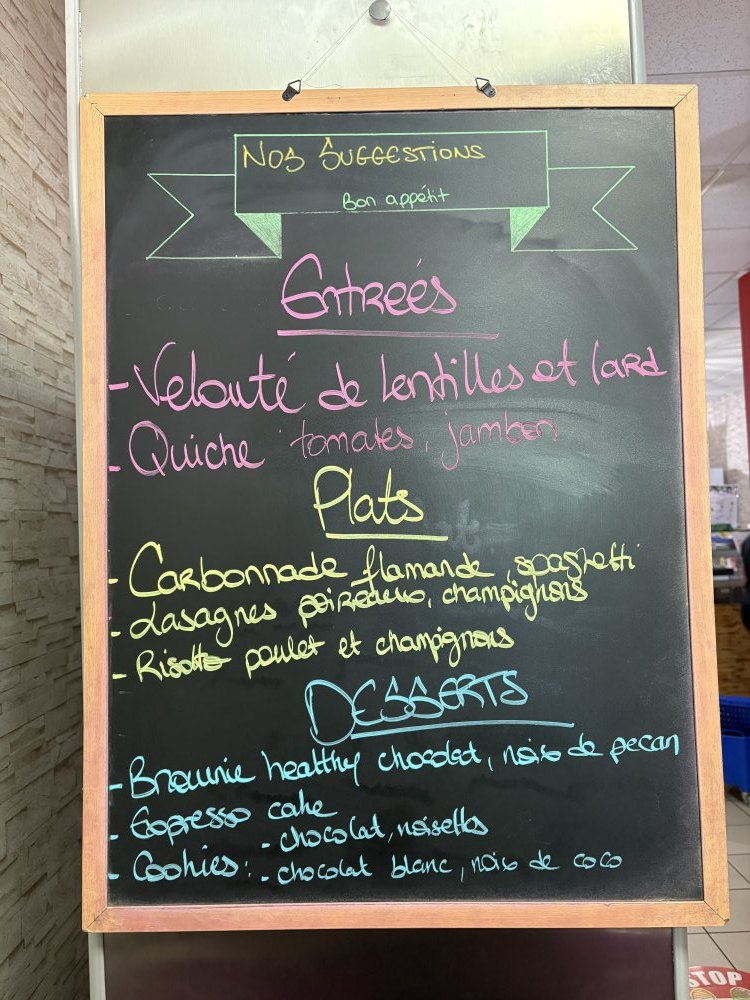 NOS SUGGESTIONS
Bon appétit
Entreés
- Velouté de lentilles et lard
- Quiche tomates, jambon
Plats
- Carbonnade flamande, spaghetti
- Lasagnes poireaux, champignons
- Risotto poulet et champignons
DESSERTS
- Brownie healthy chocolat, noix de pecan
- Espresso cake
- Cookies: - chocolat, noisettes
- chocolat blanc, noix de coco
STOP